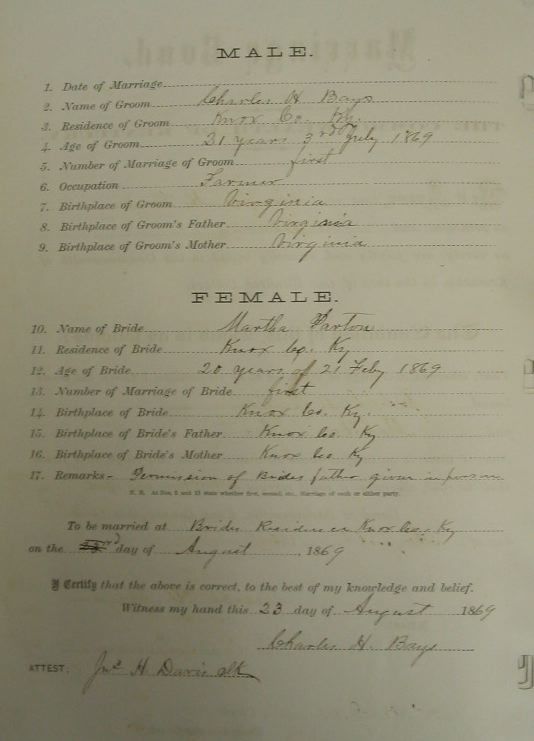 MALE.
1. Date of Marriage
2. Name of Groom Charles H Bays
3. Residence of Groom Knox Co. Ky.
4. Age of Groom 21 years 3rd July 1869
5. Number of Marriage of Groom first
6. Occupation Farmer
7. Birthplace of Groom Virginia
8. Birthplace of Groom's Father Virginia
9. Birthplace of Groom's Mother Virginia
FEMALE.
10. Name of Bride Martha Parton
11. Residence of Bride Knox Co. Ky
12. Age of Bride 20 years of 21 Feby 1869
13. Number of Marriage of Bride first
14. Birthplace of Bride Knox Co. Ky.
15. Birthplace of Bride's Father Knox Co. Ky
16. Birthplace of Bride's Mother Knox Co Ky
17. Remarks- Permission of Brides father given in person
N. B. At Nos. 5 and 13 state whether first, second, etc., Marriage of each or either party.
To be married at Brides Residence Knox Co. Ky
on the day of August, 1869
I Certify that the above is correct, to the best of my knowledge and belief.
Witness my hand this 23 day of August 1869
Charles H. Bays
ATTEST: Jno H. Davis clk